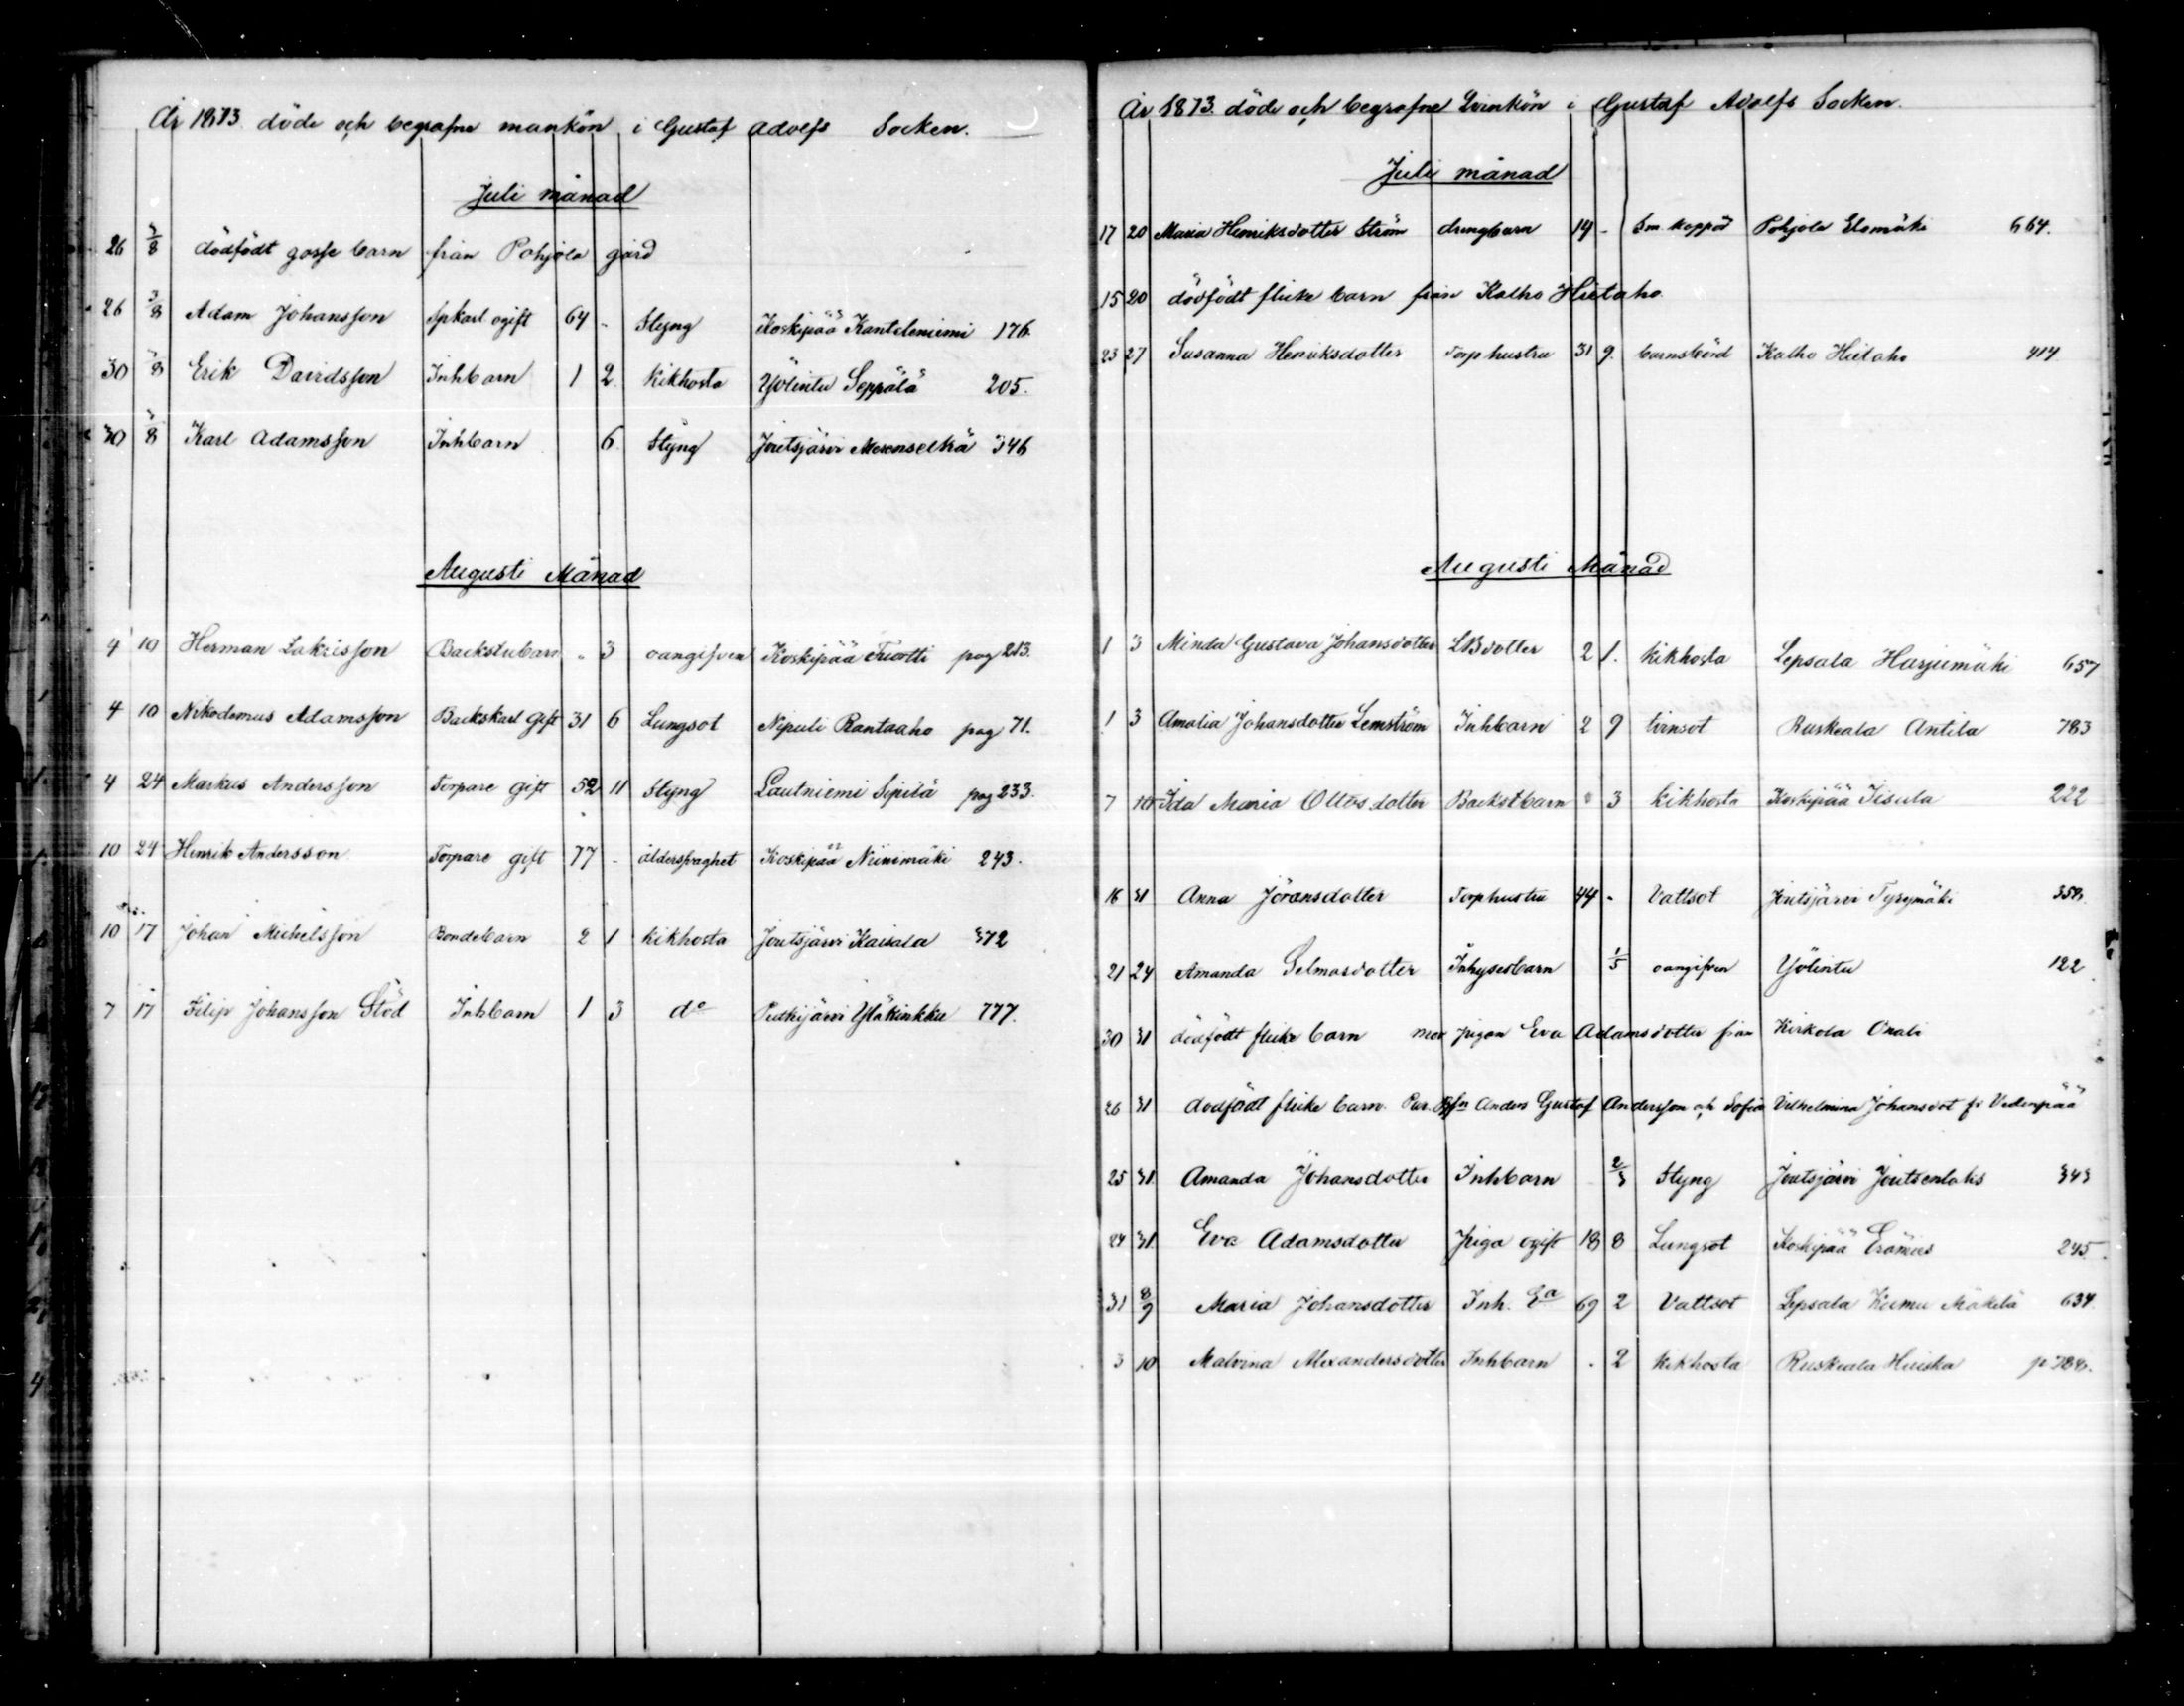 År 1873. döde och begrafne mankön i Gustaf Adolfs Socken.
Juli månad
26 3/8 dödfödt gosse barn från Pohjola gård
26 3/8 Adam Johansson Spkarl ogift 64 - Styng Koskipää Kanteleniemi 176.
30 3/8 Erik Davidsson Inhbarn 1 2. Kikhosta Ylölintu Seppälä 205.
30 3/8 Karl Adamsson Inhbarn 6. Styng Joutsjärvi Merenselkä 346
Augusti Månad
4 10 Herman Sakrisson Backstubarn „ 3 oangifven Koskipää Tuotti pag 213.
4 10 Nikodemus Adamsson Backskarl Gift 31 6 Lungsot Nipuli Rantaaho pag 71.
4 24 Markus Andersson Torpare gift 52 11 Styng Lautniemi Sipilä pag 233.
10 24 Henrik Andersson Torpare gift 77 - ålderssvaghet Koskipää Niinimäki 243.
10 17 Johan Michelsson Bondebarn 2 1 Kikhosta Joutsjärvi Kaisala 372
7 17 Filip Johansson Stöd Inhbarn 1 3 do Putkijärvi Yläkinkku 777.
År 1873. döde och begrafne Qvinkön i Gustaf Adolfs Socken.
Juli månad
17 20 Maria Henriksdotter Ström drengbarn 14 - Sm. koppor Pohjola Elomäki 664.
15 20 dödfödt flicke barn från Kalho Hietaho
23 27 Susanna Henriksdotter Torphustru 31 9. barnsbörd Kalho Hietaho 414
Augusti Månad
1 3 Minda Gustava Johansdotter LBdotter 2 1. Kikhosta Lepsala Harjumäki 657
1 3 Amalia Johansdotter Lemström Inhbarn 2 9 tvinsot Ruskeala Antila 783
7 10 Ida Maria Ottosdotter Backstbarn " 3 Kikhosta Koskipää Iisula 222
16 31 Anna Jöransdotter Torphustru 44 - Vattsot Joutsjärvi Tyrymäki 358.
21 24 Amanda Selmasdotter Inhysesbarn 1/5 oangifven Ylölintu 122
30 31 dödfödt flicke barn mor pigan Eva Adamsdotter från Kirkola Onali
26 31 dödfödt flicke barn. Par. Anders Gustaf Andersson och Sofia Vilhelmina Johansdot fr Vedenpää
25 31 Amanda Johansdotter Inhbarn 2/3 Styng Joutsjärvi Joutsenlahi 343
24 31 Eva Adamsdotter piga ogift 18 8 Lungsot Koskipää Erämies 245
31 8/9 Maria Johansdotter Inh. Ea 69 2 Vattsot Lepsala Kumu Mäkelä 634.
3 10 Malvina Alexandersdotter Inhbarn . 2 Kikhosta Ruskeala